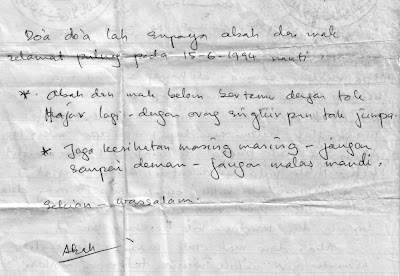 Do'a do'a lah supaya abah dan mak
selamat pulang pada 15-6-1994 nanti
* . Abah dan mak belum bertemu dengan tok
Hajar lagi - dengan orang singkir pun tak jumpa.
* Jaga kesihatan masing masing - jangan
sampai demam - jangan malas mandi.
Sekian - wassalam.
Abah